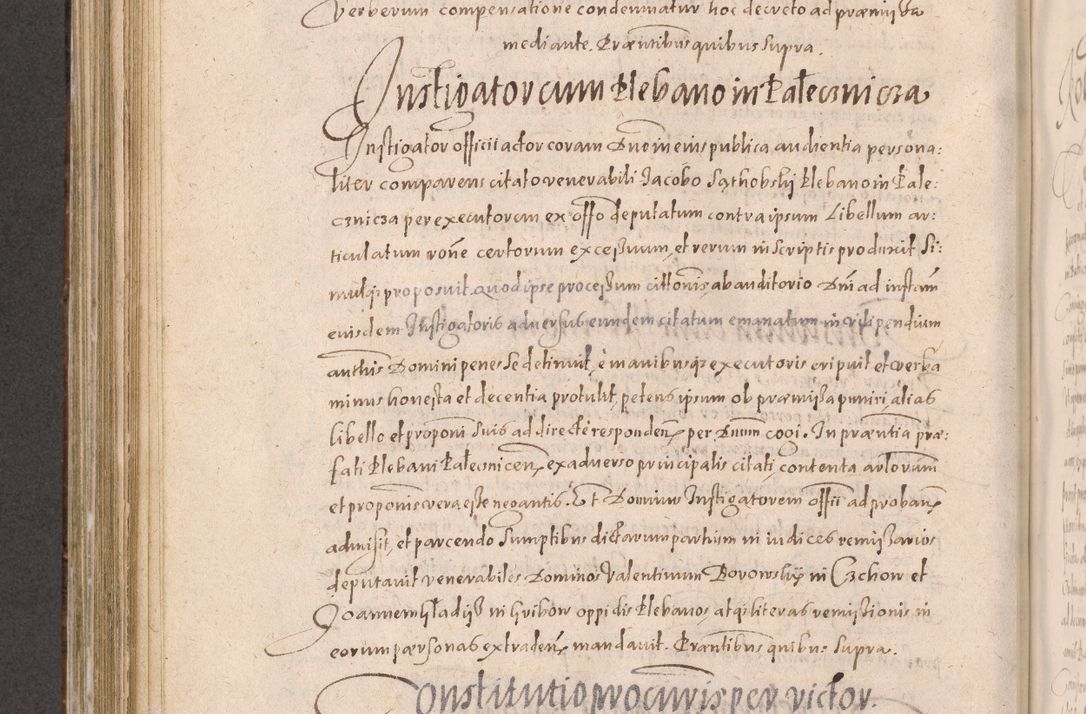 Verberum compensatione condemnatur hoc decreto ad præmissa
mediante. Præntibus quibus supra.
Instigator cum Plebano in Palecznicza
Instigator officii actor coram Dno in eius publica audientia persona:
liter comparens citato venerabili Jacobo Sąthobskj Plebano in Pale:
cznicza per executorem ex offo deputatum contra ipsum Libellum ar:
ticulatum rone certorum excessuum, et rerum in scriptis produxit. Si:
mulqs proposuit. Quod ipse processum citionis ab auditorio Dni ad instam
eiusdem Instigatoris adversus eundem citatum emanatum in vilipendium
autthis Domini penes se detinuit, è manibusqs executoris eripuit et verba
minus honesta et decentia protulit, petens ipsum ob præmissa puniri, alias
libello et proponi suis ad directe responden per Dnum cogi. In præntia præ:
fati Plebani Palecznicen ex adverso principalis citati, contenta arlorum
et proponis vera esse negantis. Et Dominus Instigatorem offii ad proban
admisit, et parcendo sumptibus dictarum partium in iudices remissarios
deputavit venerabiles Dominos Valentinum Borowskÿ in Czchow et
Joannem Gładisz in Gribow oppidis Plebanos, atqs literas remissionis in
eorum personas extraden mandavit. Præntibus quibus supra.
Constitutio procuris per victor.